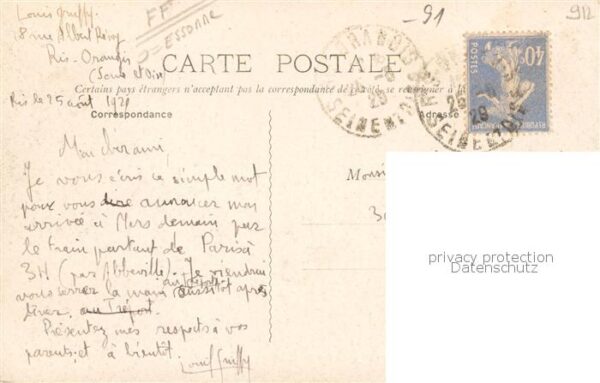 Louis
18 rue Albert
Ris-Orangis
(Seine et Oise)
FF
ESSONNE
-91
912
CARTE POSTALE
Certains pays étrangers n'acceptent pas la correspondance de ce côté, se renseigner à la
Ris le 25 août 1928
Correspondance
Adresse
ORANGIS
25
28
SEINE ET OISE
40c
POSTES
FRANÇAISE
Mon cher ami,
Je vous écris ce simple mot
pour vous dire annoncer mon
arrivée à Mers demain par
le train partant de Paris à
3H (par Abbeville). Je viendrai
vous serrer la main aussitôt après
dîner. au Tréport.
Présentez mes respects à vos
parents, et à bientôt.
Louis
Monsie
3
privacy protection
Datenschutz